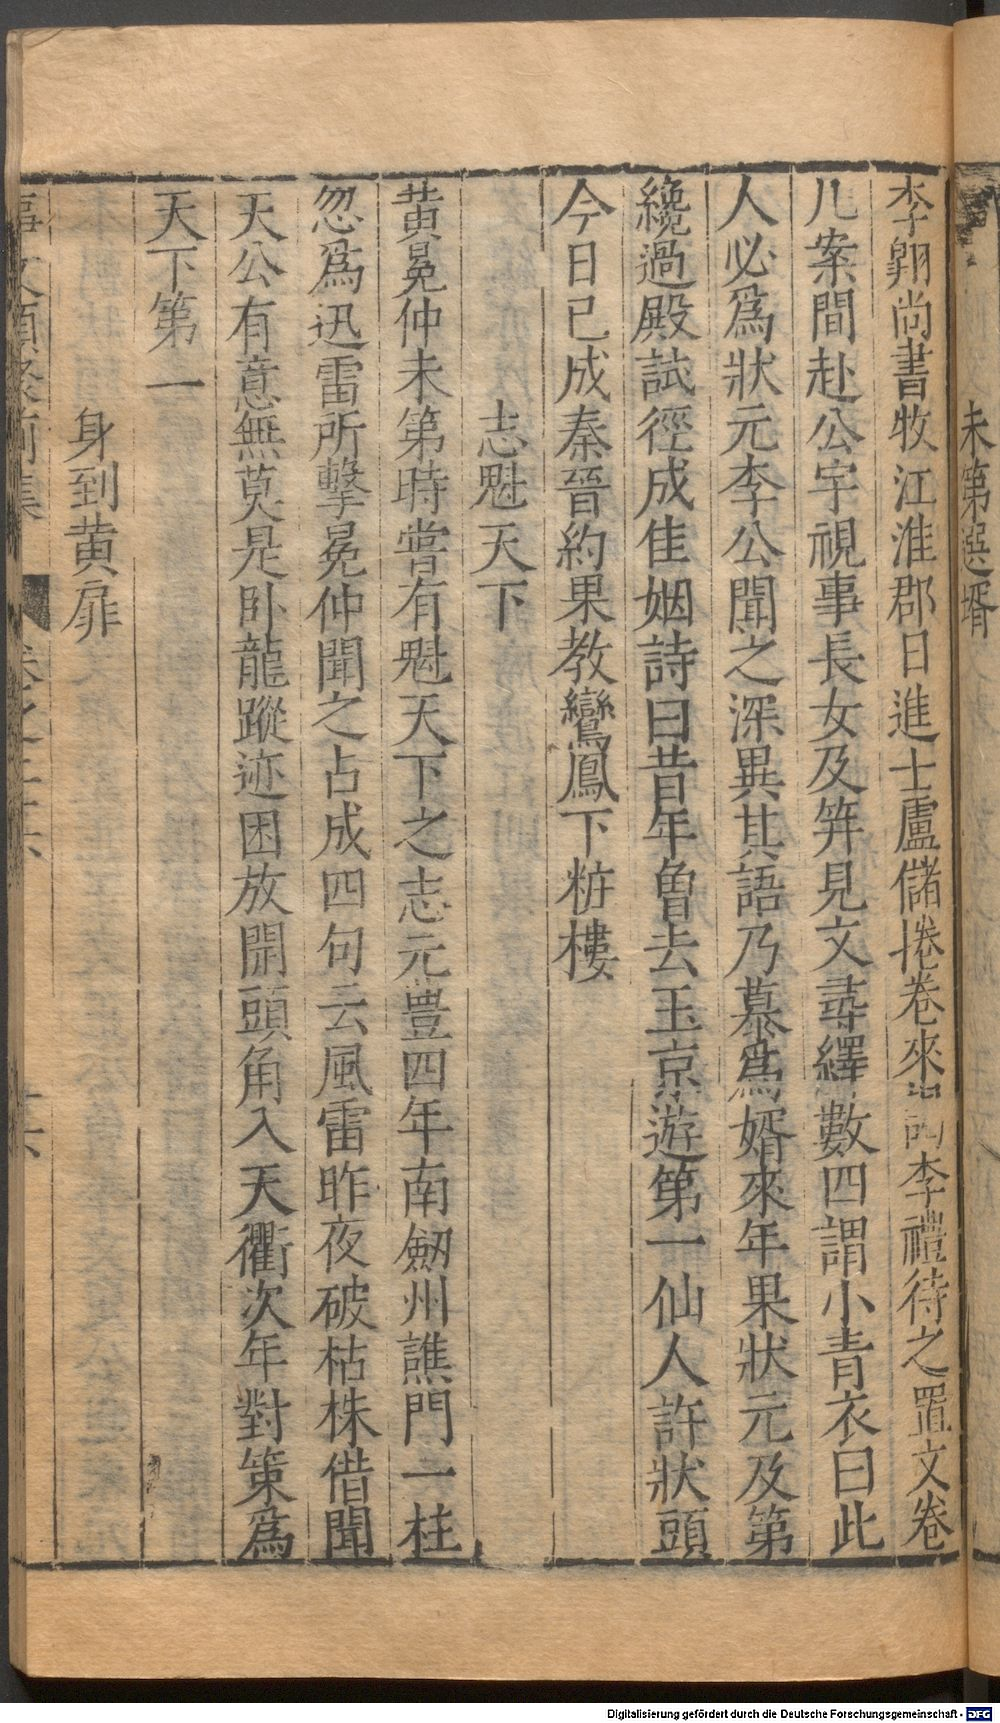 未第選婿
李翺尚書牧江淮郡日進士盧儲捲卷來謁李禮待之置文卷
几案間赴公宇視事長女及筓見文尋繹數四謂小青衣曰此
人必為狀元李公聞之深異其語乃慕為婿來年果狀元及第
纔過殿試徑成佳姻詩曰昔年曾去玉京遊第一仙人許狀頭
今日已成秦晉約果教鸞鳳下粧樓
志魁天下
黄冕仲未第時嘗有魁天下之志元豊四年南劒州譙門一柱
忽為迅雷所擊冕仲聞之占成四句云風雷昨夜破枯株借聞
天公有意無莫是卧龍蹤迹困放開頭角入天衢次年對策為
天下第一
身到黄扉
事文類聚前集 卷之二十六 二十六
Digitalisierung gefördert durch die Deutsche Forschungsgemeinschaft - DFG